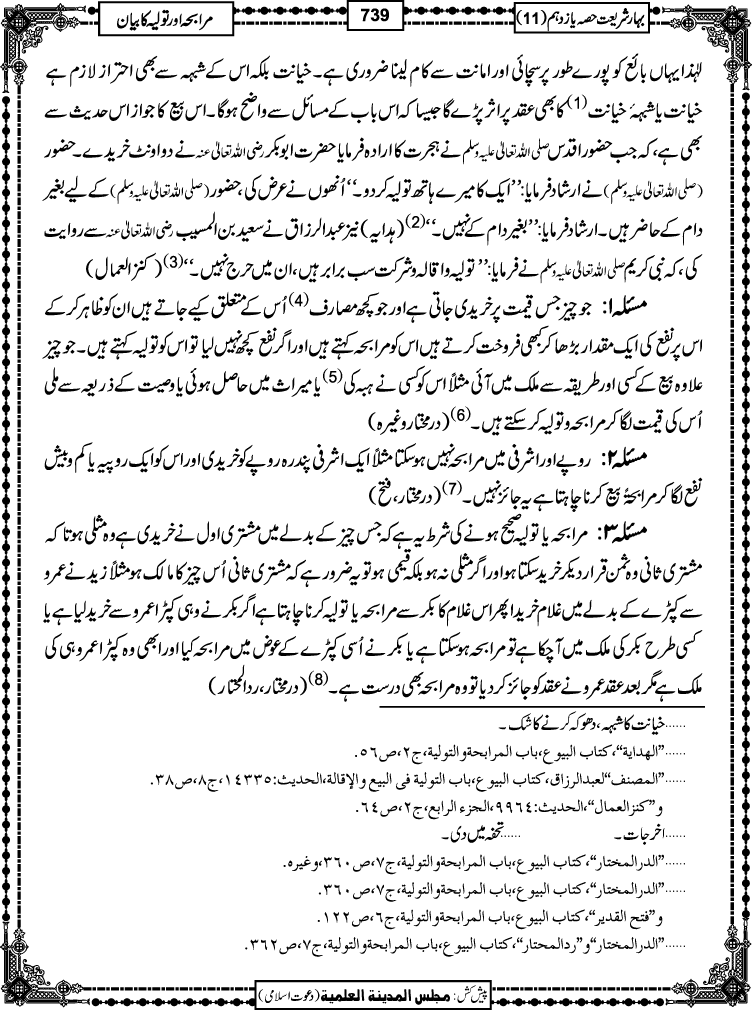 بہار شریعت حصہ یازدہم (11)
739
مرابحہ اور تولیہ کا بیان
لہٰذا یہاں بائع کو پورے طور پر سچائی اور امانت سے کام لینا ضروری ہے۔ خیانت بلکہ اس کے شبہہ سے بھی احتراز لازم ہے
خیانت یا شبہۂ خیانت (1) کا بھی عقد پر اثر پڑے گا جیسا کہ اس باب کے مسائل سے واضح ہوگا۔ اس بیع کا جواز اس حدیث سے
بھی ہے، کہ جب حضور اقدس صلی اللہ تعالیٰ علیہ وسلم نے ہجرت کا ارادہ فرمایا حضرت ابوبکر رضی اللہ تعالیٰ عنہ نے دو اونٹ خریدے۔ حضور
(صلی اللہ تعالیٰ علیہ وسلم) نے ارشاد فرمایا: ’’ایک کا میرے ہاتھ تولیہ کردو۔‘‘ اُنھوں نے عرض کی، حضور (صلی اللہ تعالیٰ علیہ وسلم) کے لیے بغیر
دام کے حاضر ہیں۔ ارشاد فرمایا: ’’بغیر دام کے نہیں۔‘‘(2) (ہدایہ) نیز عبدالرزاق نے سعید بن المسیب رضی اللہ تعالیٰ عنہ سے روایت
کی، کہ نبی کریم صلی اللہ تعالیٰ علیہ وسلم نے فرمایا: ’’تولیہ و اقالہ و شرکت سب برابر ہیں، ان میں حرج نہیں۔‘‘(3) (کنز العمال)
مسئلہ ۱: جو چیز جس قیمت پر خریدی جاتی ہے اور جو کچھ مصارف (4) اُس کے متعلق کیے جاتے ہیں ان کو ظاہر کرکے
اس پر نفع کی ایک مقدار بڑھا کر کبھی فروخت کرتے ہیں اس کو مرابحہ کہتے ہیں اور اگر نفع کچھ نہیں لیا تو اس کو تولیہ کہتے ہیں۔ جو چیز
علاوہ بیع کے کسی اور طریقہ سے ملک میں آئی مثلاً اس کو کسی نے ہبہ کی (5) یا میراث میں حاصل ہوئی یا وصیت کے ذریعہ سے ملی
اُس کی قیمت لگا کر مرابحہ و تولیہ کر سکتے ہیں۔ (6) (درمختار وغیرہ)
مسئلہ ۲: روپے اور اشرفی میں مرابحہ نہیں ہوسکتا مثلاً ایک اشرفی پندرہ روپے کو خریدی اور اس کو ایک روپیہ یا کم و بیش
نفع لگا کر مرابحۃً بیع کرنا چاہتا ہے یہ جائز نہیں۔ (7) (درمختار، فتح)
مسئلہ ۳: مرابحہ یا تولیہ صحیح ہونے کی شرط یہ ہے کہ جس چیز کے بدلے میں مشتری اول نے خریدی ہے وہ مثلی ہو تاکہ
مشتری ثانی وہ ثمن قرار دیکر خرید سکتا ہو اور اگر مثلی نہ ہو بلکہ قیمی ہو تو یہ ضرور ہے کہ مشتری ثانی اُس چیز کا مالک ہو مثلاً زید نے عمرو
سے کپڑے کے بدلے میں غلام خریدا پھر اس غلام کا بکر سے مرابحہ یا تولیہ کرنا چاہتا ہے اگر بکر نے وہی کپڑا عمرو سے خرید لیا ہے یا
کسی طرح بکر کی ملک میں آچکا ہے تو مرابحہ ہوسکتا ہے یا بکر نے اُسی کپڑے کے عوض میں مرابحہ کیا اور ابھی وہ کپڑا عمرو ہی کی
ملک ہے مگر بعد عقد عمرو نے عقد کو جائز کر دیا تو وہ مرابحہ بھی درست ہے۔ (8) (درمختار، ردالمحتار)
......خیانت کا شبہہ، دھوکہ کرنے کا شک۔
......’’الھدایة‘‘، کتاب البیوع، باب المرابحة والتولیة، ج۲، ص۵۶.
......’’المصنف‘‘ لعبدالرزاق، کتاب البیوع، باب التولیة فی البیع والإقالة، الحدیث:۱۴۳۳۵، ج۸، ص۳۸.
و ’’کنزالعمال‘‘، الحدیث: ۹۹۶۴، الجزء الرابع، ج۲، ص۶۴.
......اخرجات۔ ......تحفہ میں دی۔
......’’الدرالمختار‘‘، کتاب البیوع، باب المرابحة والتولیة، ج۷، ص۳۶۰، وغیرہ.
......’’الدرالمختار‘‘، کتاب البیوع، باب المرابحة والتولیة، ج۷، ص۳۶۰.
و ’’فتح القدیر‘‘، کتاب البیوع، باب المرابحة والتولیة، ج۶، ص۱۲۲.
......’’الدرالمختار‘‘ و ’’ردالمحتار‘‘، کتاب البیوع، باب المرابحة والتولیة، ج۷، ص۳۶۲.
پیش کش: مجلس المدینة العلمیة (دعوت اسلامی)